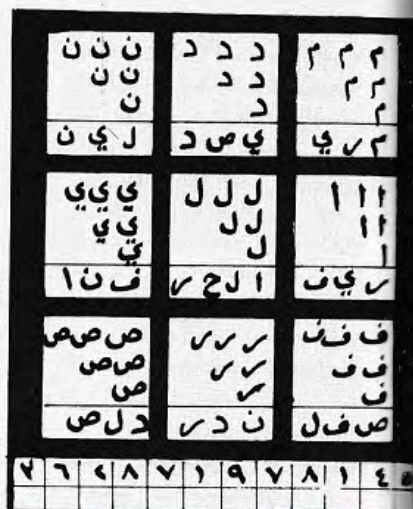 م م م
م م
م
م ر ي
د د د
د د
د
ي ص د
ن ن ن
ن ن
ن
ل ي ن
ا ا ا
ا ا
ا
ر ي ف
ل ل ل
ل ل
ل
ا ل ح ر
ي ي ي
ي ي
ي
ف ن ا
ف ف ف
ف ف
ف
ص ف ل
ر ر ر
ر ر
ر
ن د ر
ص ص ص
ص ص
ص
د ل ص
٣ ٦ ٢ ٨ ٧ ١ ٩ ٧ ٨ ١ ٤